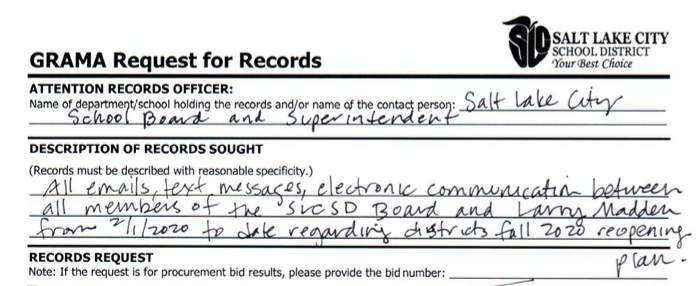 SALT LAKE CITY
SCHOOL DISTRICT
Your Best Choice
GRAMA Request for Records
ATTENTION RECORDS OFFICER:
Name of department/school holding the records and/or name of the contact person: Salt Lake City
School Board and Superintendent
DESCRIPTION OF RECORDS SOUGHT
(Records must be described with reasonable specificity.)
All emails, text messages, electronic communication between
all members of the SLCSD Board and Larry Madden
from 2/1/2020 to date regarding districts fall 2020 reopening
plan.
RECORDS REQUEST
Note: If the request is for procurement bid results, please provide the bid number: